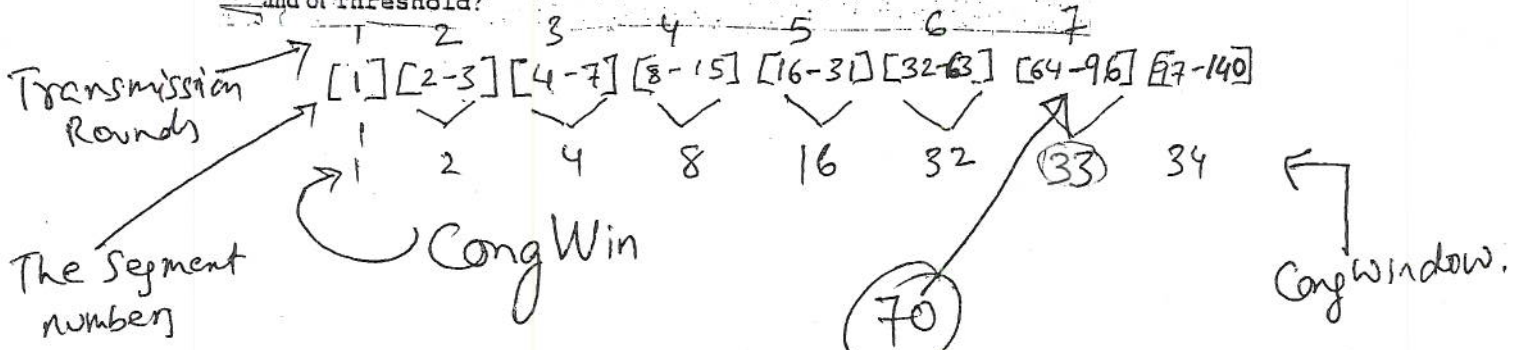 and of Threshold?
1 2 3 4 5 6 7
Transmission Rounds
[1] [2-3] [4-7] [8-15] [16-31] [32-63] [64-96] [97-140]
1 2 4 8 16 32 33 34
The Segment numbers
CongWin
70
Congwindow.